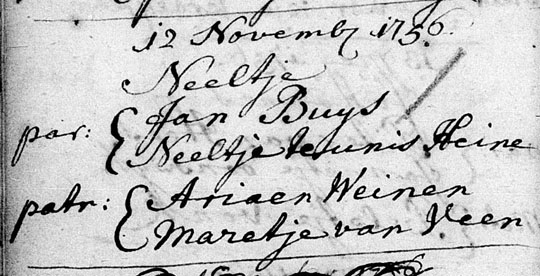 12 Novemb 1756.
Neeltje
par: { Jan Buys
Neeltje teunis Heine
patr: { Ariaen Weinen
Maretje van Veen